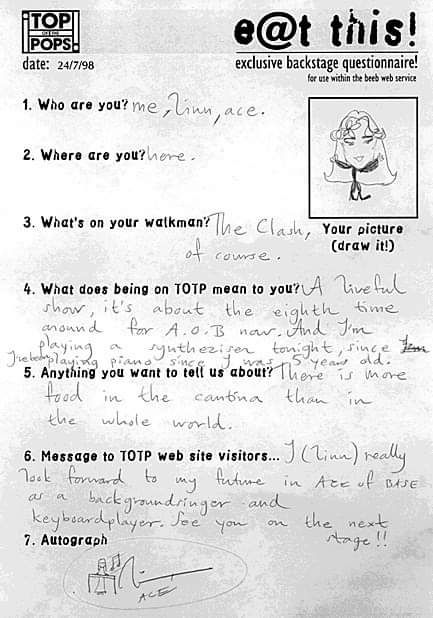 TOP
OF THE
POPS
e@t this!
date: 24/7/98
exclusive backstage questionnaire!
for use within the beeb web service
1. Who are you? me, Linn, ace.
2. Where are you? here.
3. What's on your walkman? The Clash,
of course.
Your picture
(draw it!)
4. What does being on TOTP mean to you? A liveful
show, it's about the eighth time
around for A.O.B now. And I'm
playing a syntheziser tonight, since
I've been playing piano since I was 5 years old.
5. Anything you want to tell us about? There is more
food in the cantina than in
the whole world.
6. Message to TOTP web site visitors... I (Linn) really
look forward to my future in ACE of BASE
as a backgroundsinger and
keyboardplayer. See you on the next
stage!!
7. Autograph
ACE